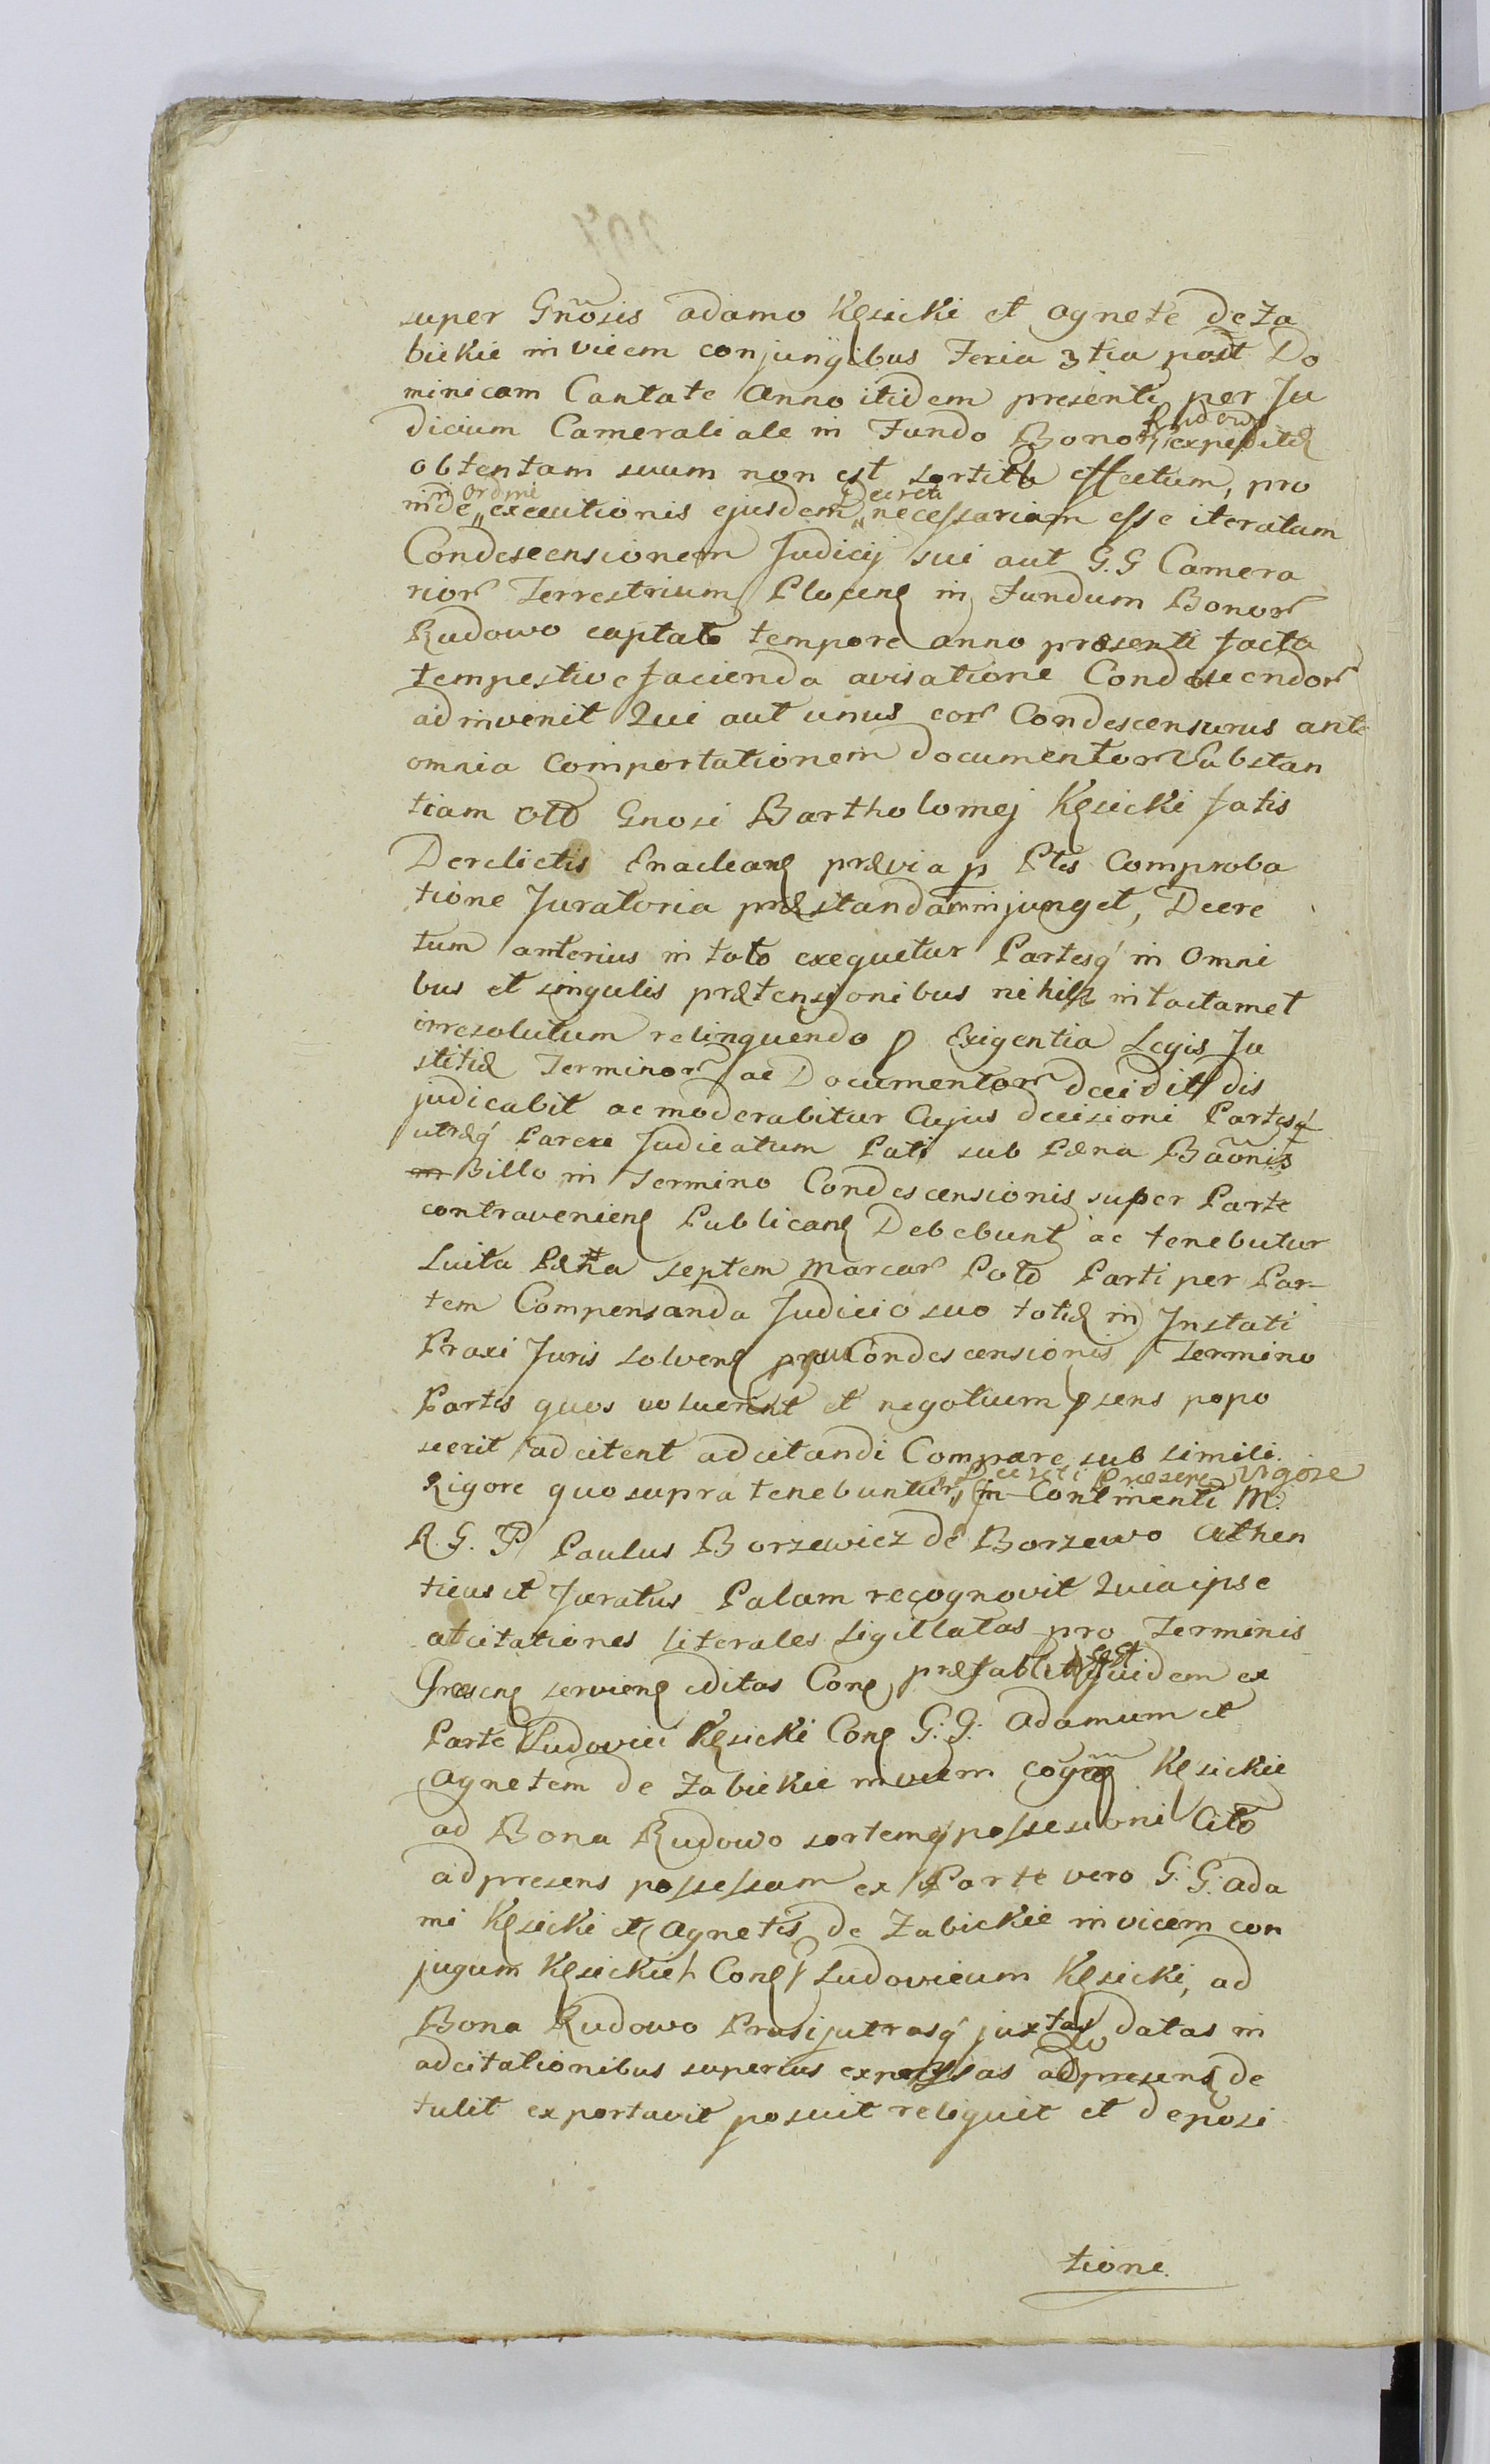 super Gñosis Adamo Kęsicki et Agnete de Za
bickie invicem conjungibus Feria 3tia post Do
minicam Cantate Anno itidem presenti per Ju
Rudowo
dicium Cameraliale in Fundo Bonor expeditę
obtentam suum non est sortita effectum, pro
in ordine Decreti
inde „ executionis ejusdem „ necessariam esse iteratam
Condescensionem Judicij sui aut G. G Camera
rior Terrestrium Plocenę in Fundum Bonor
Rudowo captato tempore anno præsenti facta
tempestive facienda avisatione Condescendor
adinvenit Qui aut unus eor Condescensurus ante
omnia Comportationem Documentor Substan
tiam Gnosi Bartholomej Kęsicki fatis
Derelictis prævia p Ptes Comproba
tione Juratoria præstandam injunget, Decre
tum anterius in toto exequetur Partesq́ in Omni
bus et singulis prætensionibus nihil intactam et
irresolutum relinquendo p Exigentia Legis Ju
stitię Terminor ac Documentor decidit dis
judicabit ac moderabitur Cujus decisioni Partesq́
utræq́ Parere Judicatum Pati sub Pæna Bãonis
Billo in Termino Condescensionis super Parte
contravenienę Publicanę Debebunt ac tenebutur
Luita Pæna septem Marcar Polo Parti per Par-
tem Compensanda Judicio suo totię in Instati
Praxi Juris solvenę Condescensionis Termino
Partes quos voluerint et negotium psens popo
scerit adcitent adcitandi Compare sub simili
Decreti Præsenę Vigore
Rigore quo supra tenebuntur „ in Continenti M:
R. G. P Paulus Borzewicz de Borzewo Authen
ticus et Juratus Palam recognovit Quia ipse
adcitationes literales Sigillatas pro Terminis
est
Præsenę servienę editas Conę quidem ex
Parte Ludovici Kęsicki Conę G: G: Adamum et
Agnetem de Zabickie invicem Kęsickie
ad Bona Rudowo sortemq́ possessioni Cito
adpresens possessam ex Parte vero G: G: Ada
mi Kęsicki et Agnetis de Zabickie invicem con
jugum Kęsickich Conę Ludovicum Kęsicki, ad
Bona Rudowo juxta datas in
adcitationibus superius expressas adpresens de
tulit exportavit posuit reliquit et deposi
tione.